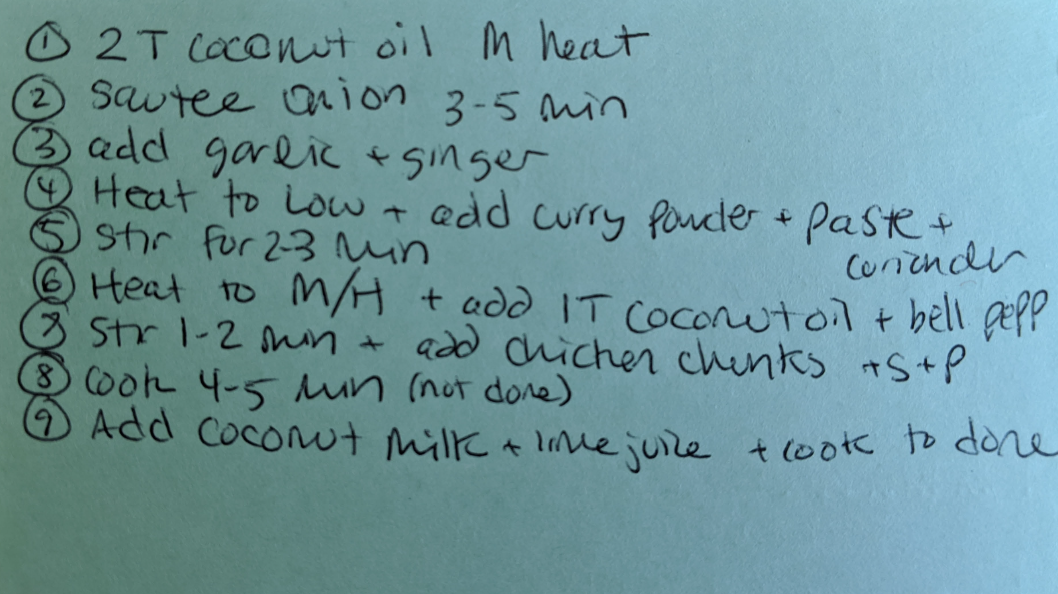 ① 2 T coconut oil M heat
② Sautee onion 3-5 min
③ add garlic + ginger
④ Heat to Low + add curry powder + paste +
coriander
⑤ Stir for 2-3 min
⑥ Heat to M/H + add 1T coconut oil + bell pepp
⑦ Stir 1-2 min + add chicken chunks + S + P
⑧ cook 4-5 min (not done)
⑨ Add coconut milk + lime juice + cook to done